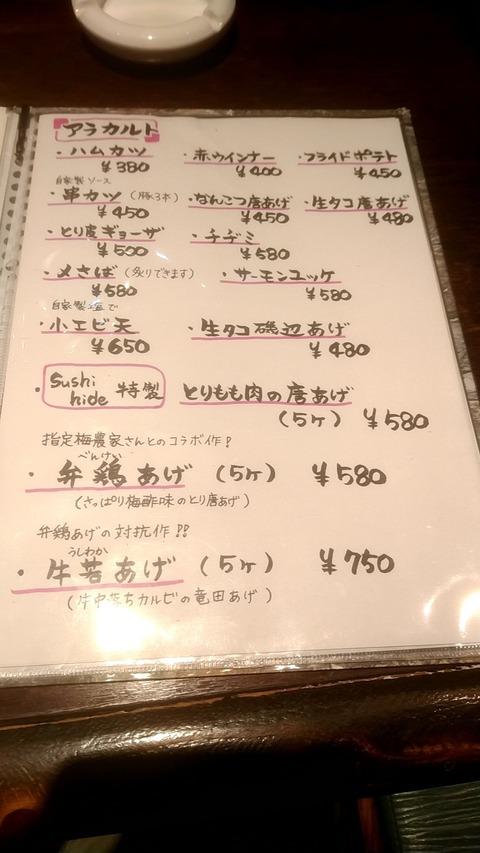 アラカルト
・ハムカツ ・赤ウインナー ・フライドポテト
¥380 ¥400 ¥450
自家製ソース
・串カツ (豚3本) ・なんこつ唐あげ ・生タコ唐あげ
¥450 ¥450 ¥480
・とり皮ギョーザ ・チヂミ
¥500 ¥580
・〆さば (炙りできます) ・サーモンユッケ
¥580 ¥580
自家製塩で
・小エビ天 ・生タコ磯辺あげ
¥650 ¥480
・Sushi hide 特製 とりもも肉の唐あげ
(5ヶ) ¥580
指定梅農家さんとのコラボ作!
べんけい
・弁鶏あげ (5ヶ) ¥580
(さっぱり梅酢味のとり唐あげ)
弁鶏あげの対抗作!!
うしわか
・牛若あげ (5ヶ) ¥750
(牛中落ちカルビの竜田あげ)